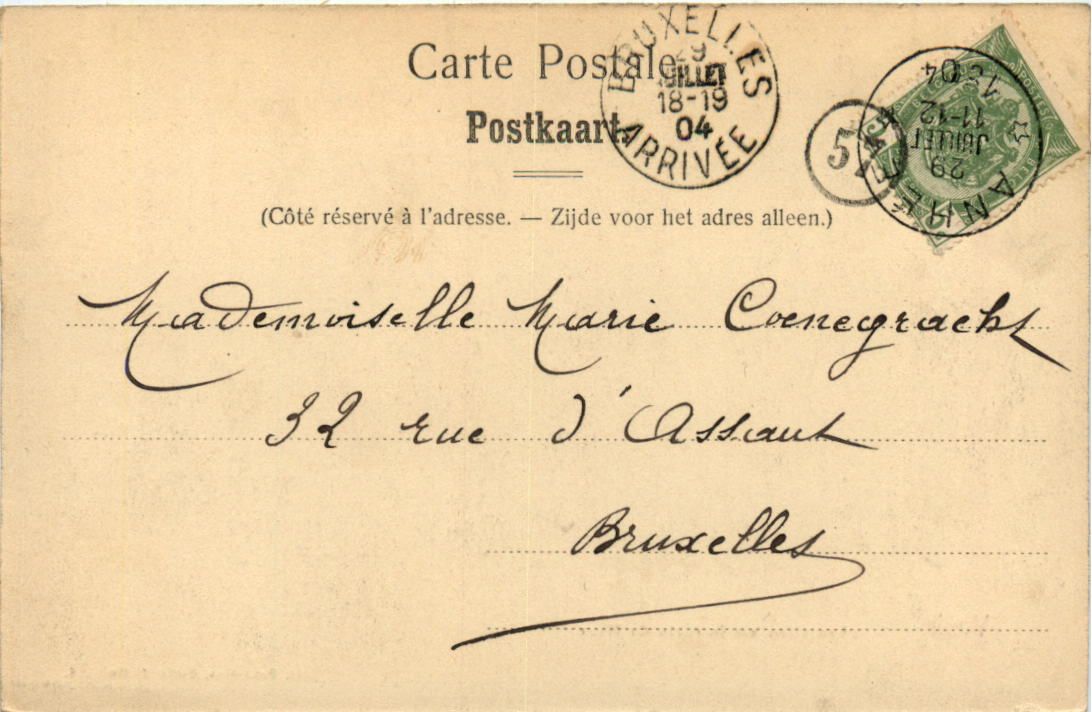 Carte Postale
Postkaart.
(Côté réservé à l'adresse. — Zijde voor het adres alleen.)
BRUXELLES
29
JUILLET
18-19
04
ARRIVÉE
5
ANHÉE
29
JUILLET
11-12
1904
Mademoiselle Marie Coenegracht
32 rue d'Assaut
Bruxelles